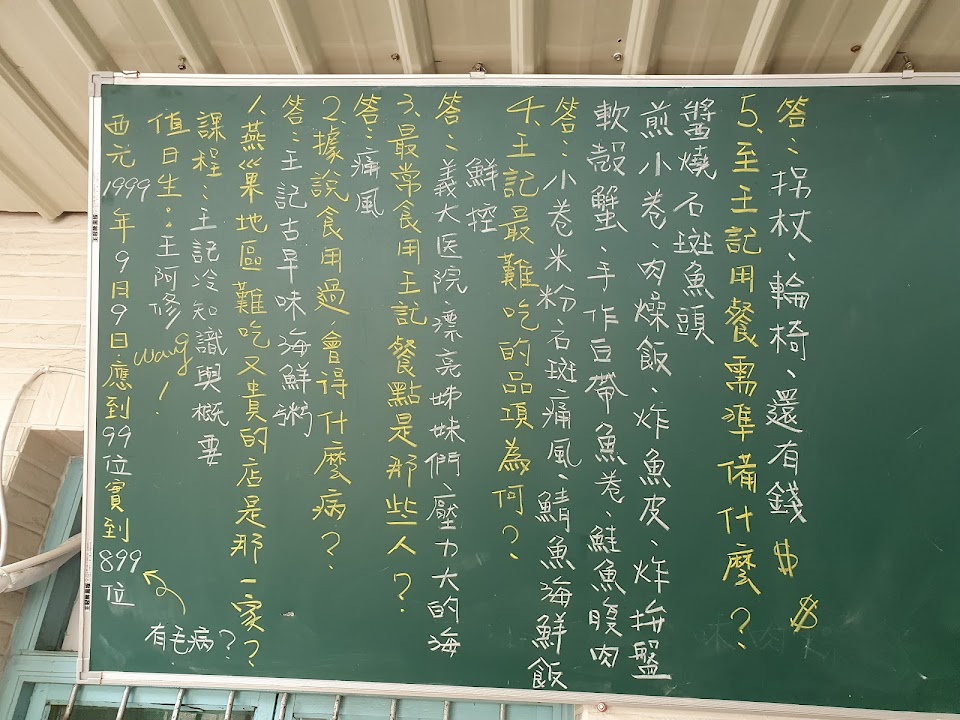 西元1999年9月9日.應到99位實到899位
有毛病?
值日生:王阿修 wang!
課程:王記冷知識與概要
1.燕巢地區難吃又貴的店是那一家?
答:王記古早味海鮮粥
2.據說食用過,會得什麼病?
答:痛風
3.最常食用王記餐點是那些人?
答:義大医院漂亮姊妹們、壓力大的海
鮮控
4.王記最難吃的品項為何?
答:小卷米粉、石斑痛風、鯖魚海鮮飯
軟殼蟹、手作豆帶魚卷、鮭魚腹肉
煎小卷、肉燥飯、炸魚皮、炸拚盤
醬燒石斑魚頭
5、至王記用餐需準備什麼?
答:拐杖、輪椅、還有錢 $ $